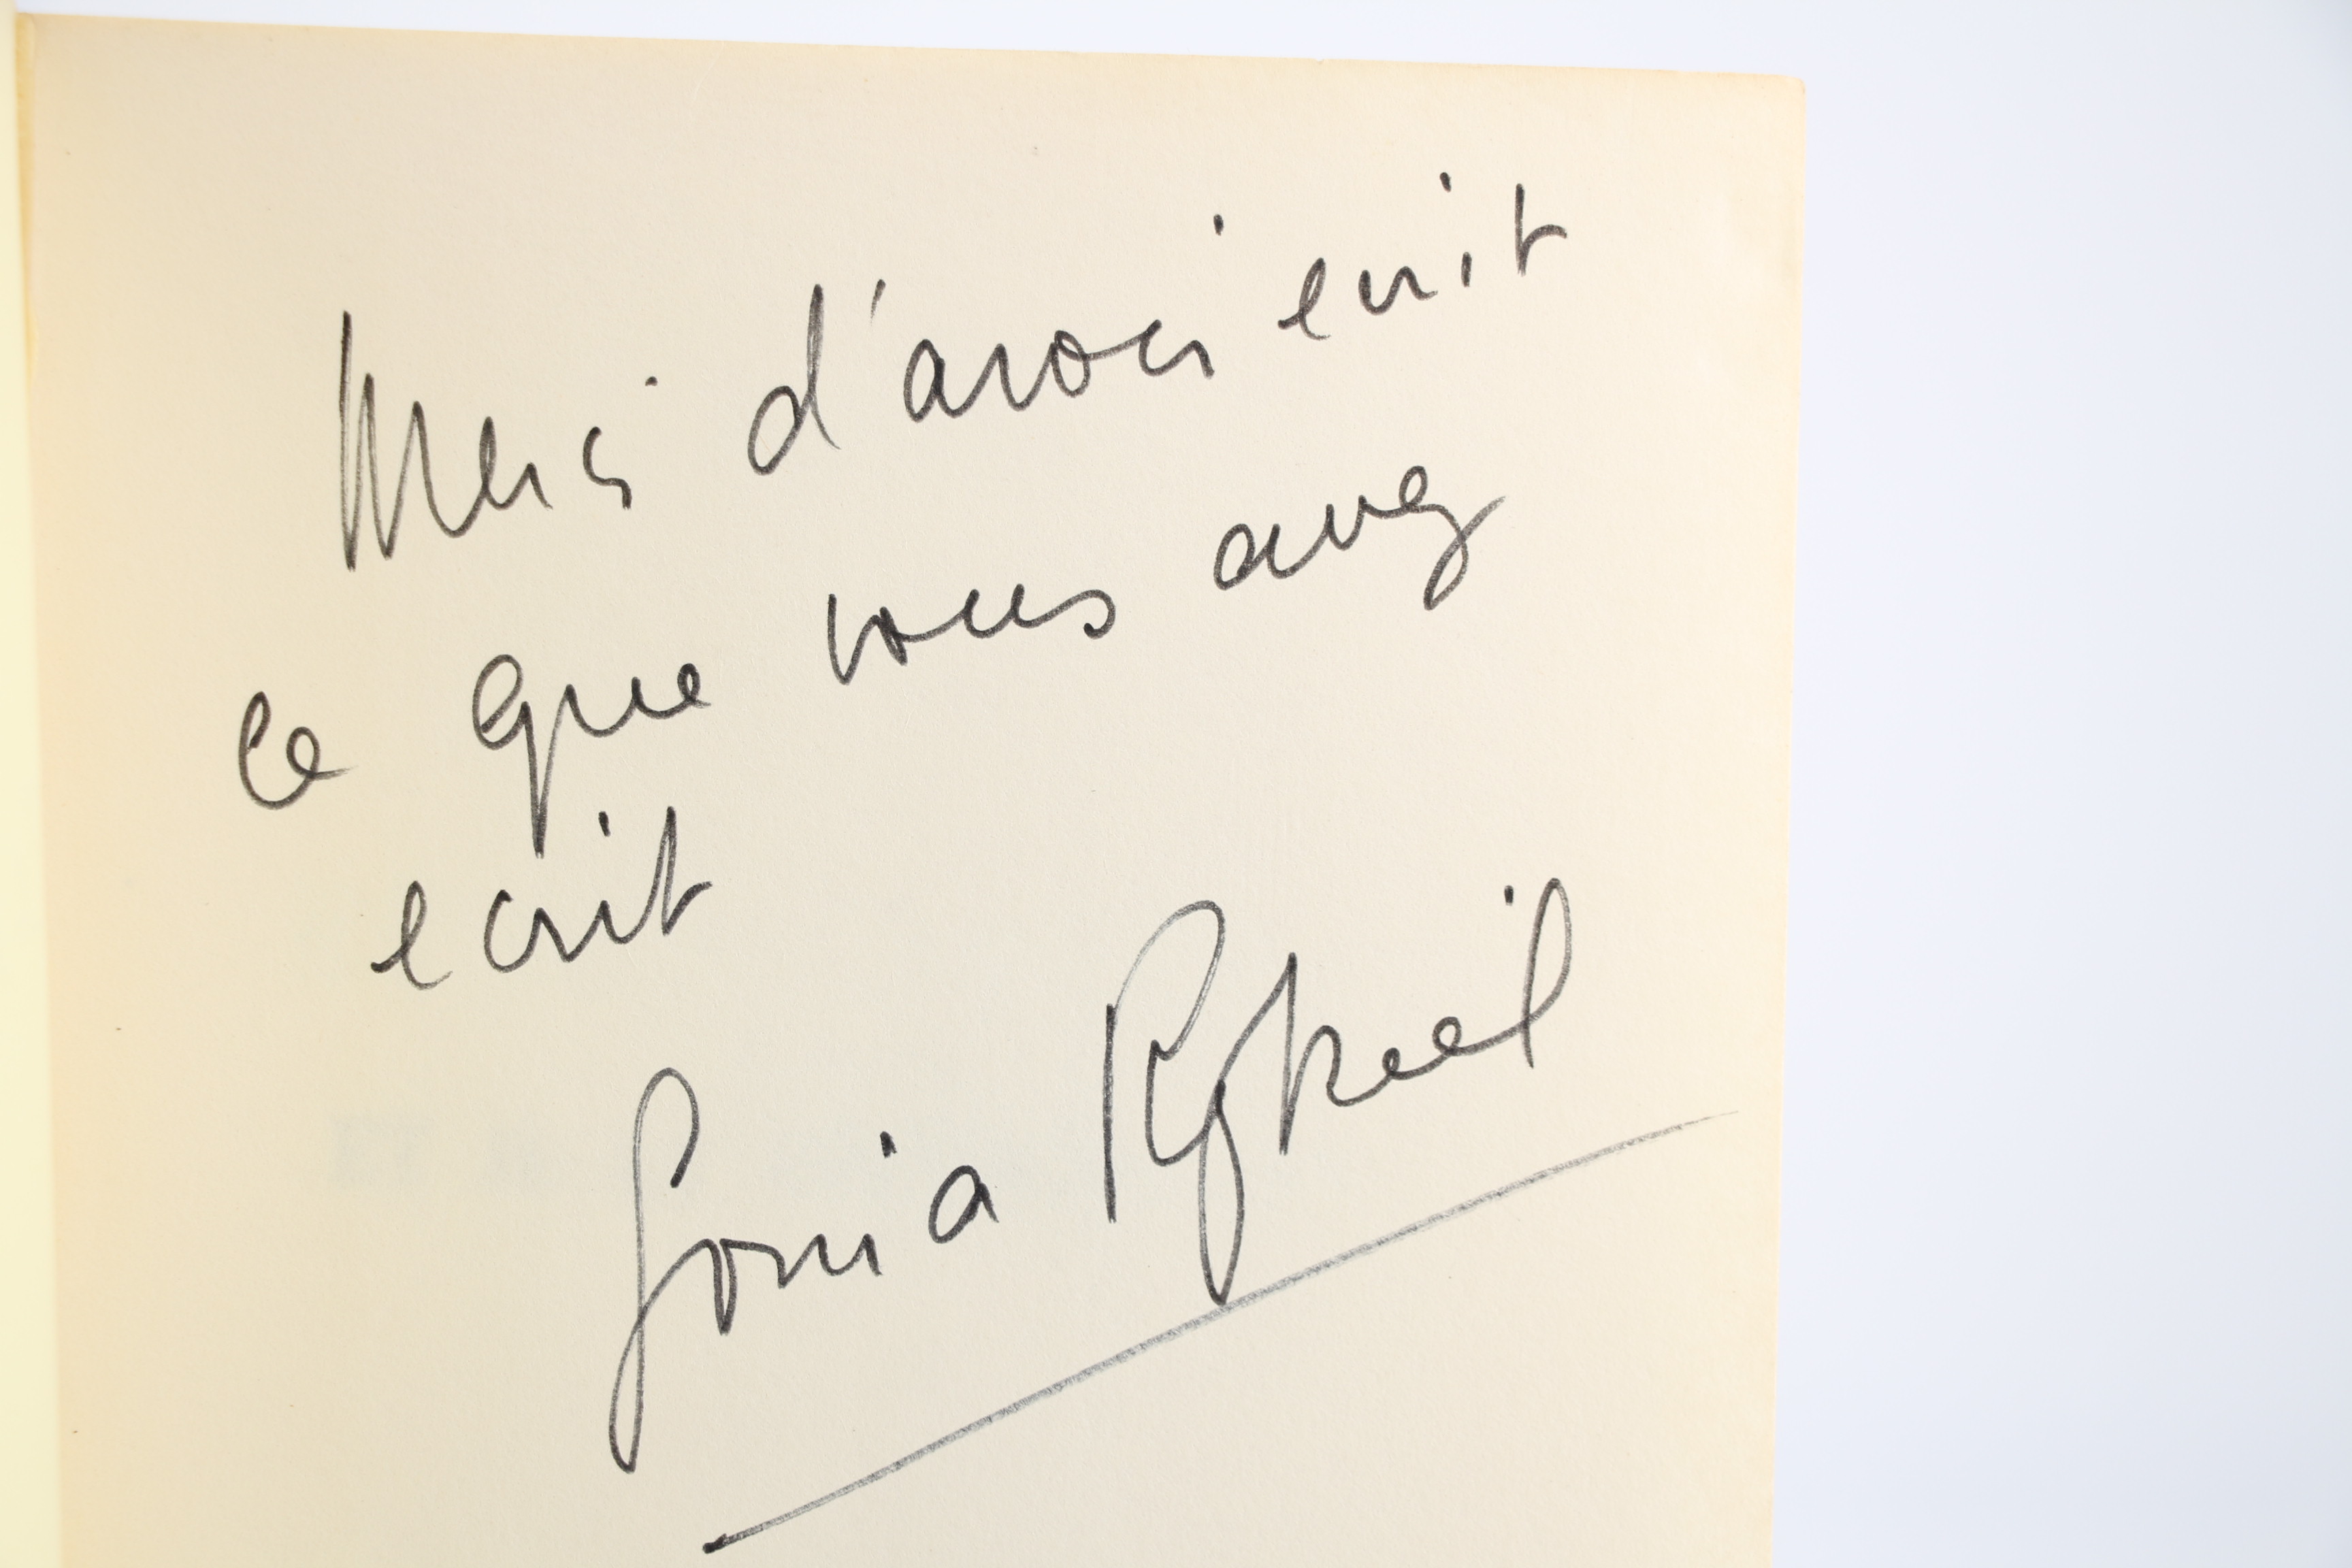 Merci d'avoir ecrit
ce que vous avez
ecrit
Sonia Rykiel